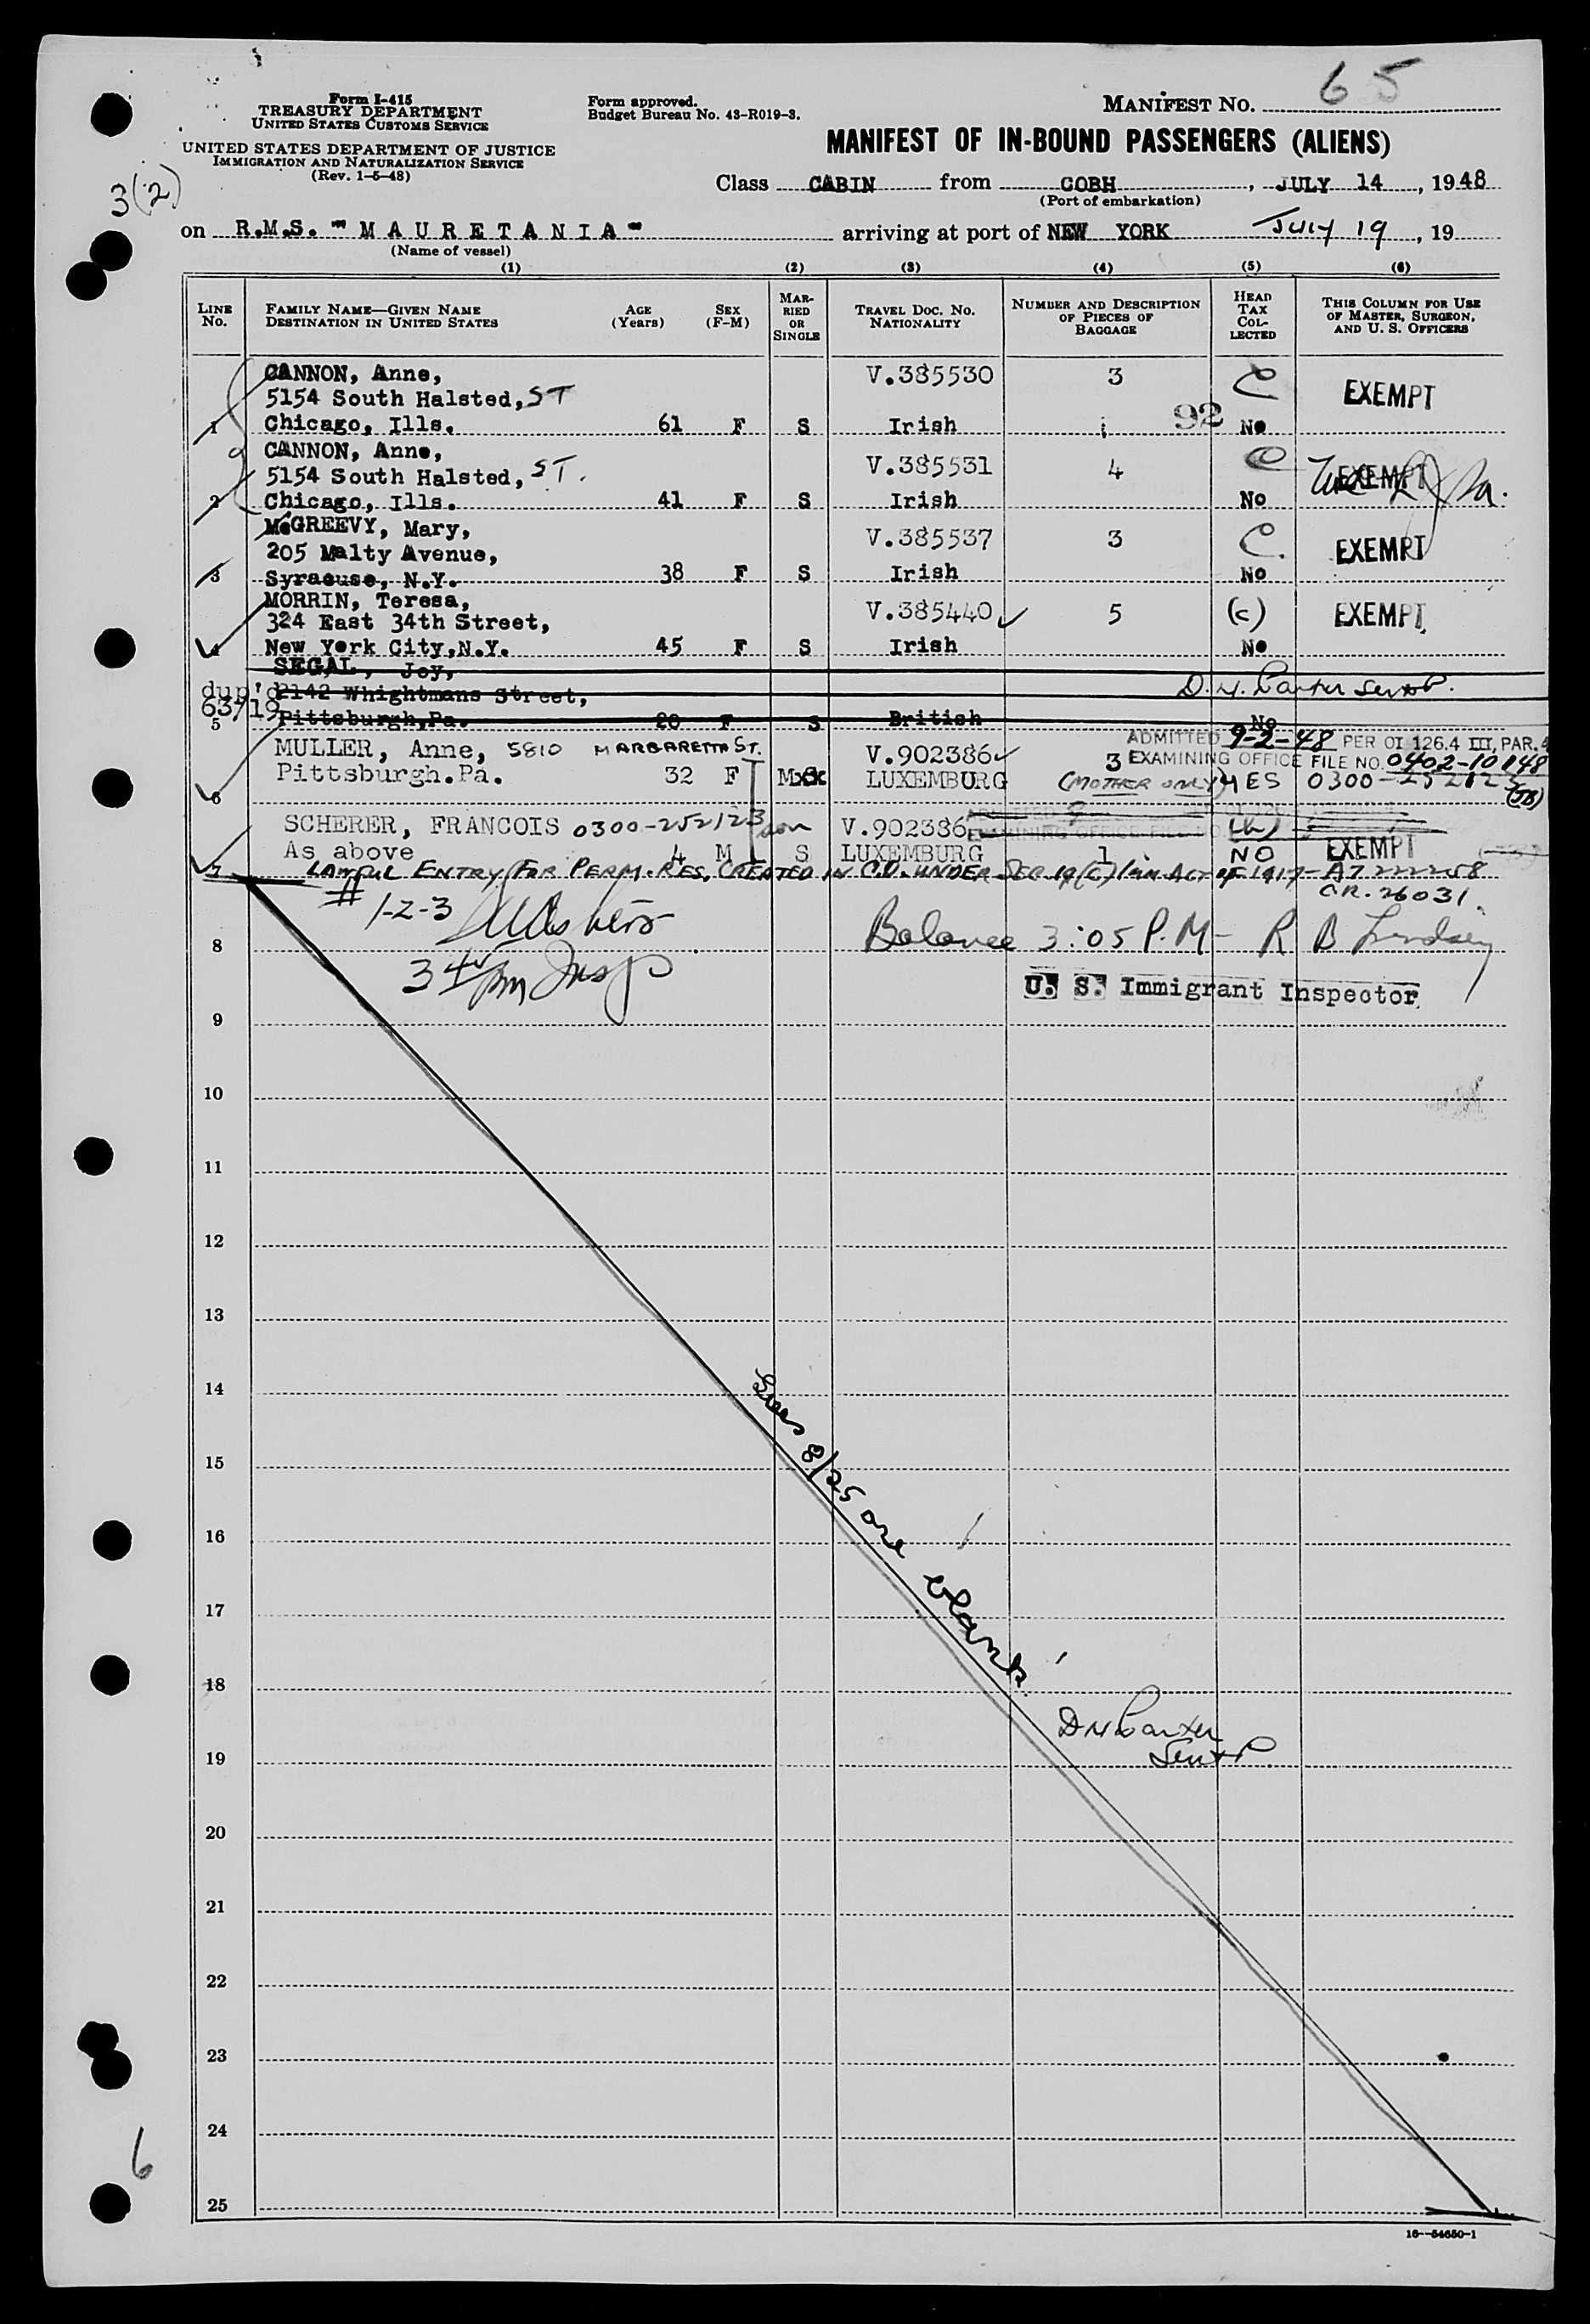 Form I-415
TREASURY DEPARTMENT
UNITED STATES CUSTOMS SERVICE
UNITED STATES DEPARTMENT OF JUSTICE
IMMIGRATION AND NATURALIZATION SERVICE
(Rev. 1-5-48)
Form approved.
Budget Bureau No. 43-R019-3.
MANIFEST NO. 65
MANIFEST OF IN-BOUND PASSENGERS (ALIENS)
3(2)
Class CABIN from COBH, JULY 14, 1948
(Port of embarkation)
on R.M.S. "MAURETANIA" arriving at port of NEW YORK July 19, 19
(Name of vessel)
(1) (2) (3) (4) (5) (6)
LINE No. FAMILY NAME—GIVEN NAME DESTINATION IN UNITED STATES AGE (Years) SEX (F-M) MARRIED OR SINGLE TRAVEL DOC. NO. NATIONALITY NUMBER AND DESCRIPTION OF PIECES OF BAGGAGE HEAD TAX COLLECTED THIS COLUMN FOR USE OF MASTER, SURGEON, AND U. S. OFFICERS
CANNON, Anne, V.385530 3 C EXEMPT
5154 South Halsted, ST
1 Chicago, Ills. 61 F S Irish 92 No
CANNON, Anne, V.385531 4 C EXEMPT
5154 South Halsted, ST.
2 Chicago, Ills. 41 F S Irish No
McGREEVY, Mary, V.385537 3 C. EXEMPT
205 Malty Avenue,
3 Syracuse, N.Y. 38 F S Irish No
MORRIN, Teresa, V.385440 5 (c) EXEMPT
324 East 34th Street,
4 New York City,N.Y. 45 F S Irish No
SEGAL, Joy,
dup'd 2142 Whightmans Street, D.H. Parker
63/19
5 Pittsburgh,Pa. 20 F S British No
MULLER, Anne, 5810 MARGARETTA ST. V.902386 3 ADMITTED 9-2-48 PER OI 126.4 III, PAR. 4
EXAMINING OFFICE FILE NO. 0402-10148
6 Pittsburgh.Pa. 32 F M LUXEMBURG (MOTHER ONLY) YES 0300-252123 (JB)
SCHERER, FRANCOIS 0300-252123 son V.902386 (h)
As above 4 M S LUXEMBURG 1 NO EXEMPT
7 LAWFUL ENTRY FOR PERM. RES. CREATED IN C.O. UNDER SEC 19(C) Imm ACT of 1917-
CR. 26031.
# 1-2-3
8 Balance 3:05 P.M- R B Lindsey
U. S. Immigrant Inspector
9
10
11
12
13
14
15
16
17
18
19
20
21
22
23
24
25
Lines 8/25 are blank!
D H Parker
6
16—54650-1